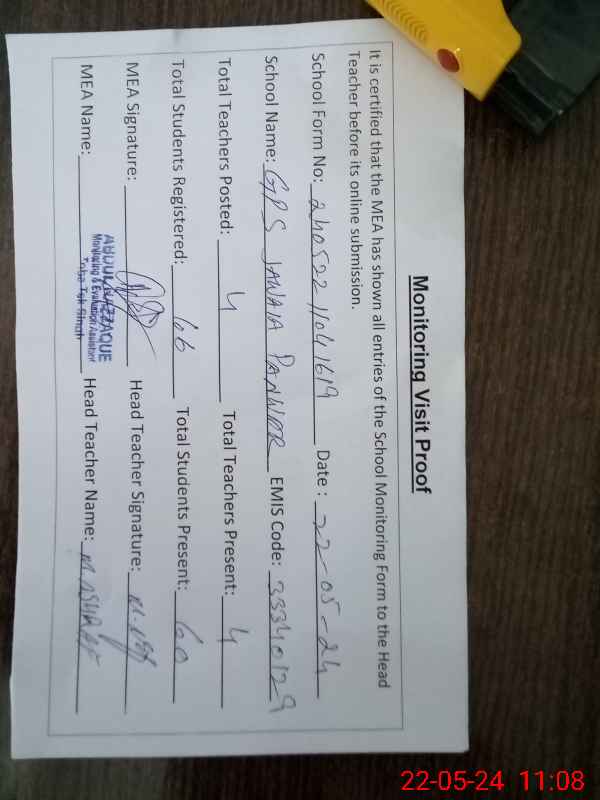 Monitoring Visit Proof
It is certified that the MEA has shown all entries of the School Monitoring Form to the Head
Teacher before its online submission.
School Form No: 240522 11041619 Date : 22-05-24
School Name: GPS JAWAIA PANWAR EMIS Code: 33340129
Total Teachers Posted: 4 Total Teachers Present: 4
Total Students Registered: 66 Total Students Present: 60
MEA Signature: Head Teacher Signature:
MEA Name: Head Teacher Name: M. ASHRAF
Monitoring & Evaluation Assistant
Toba Tek Singh
22-05-24 11:08